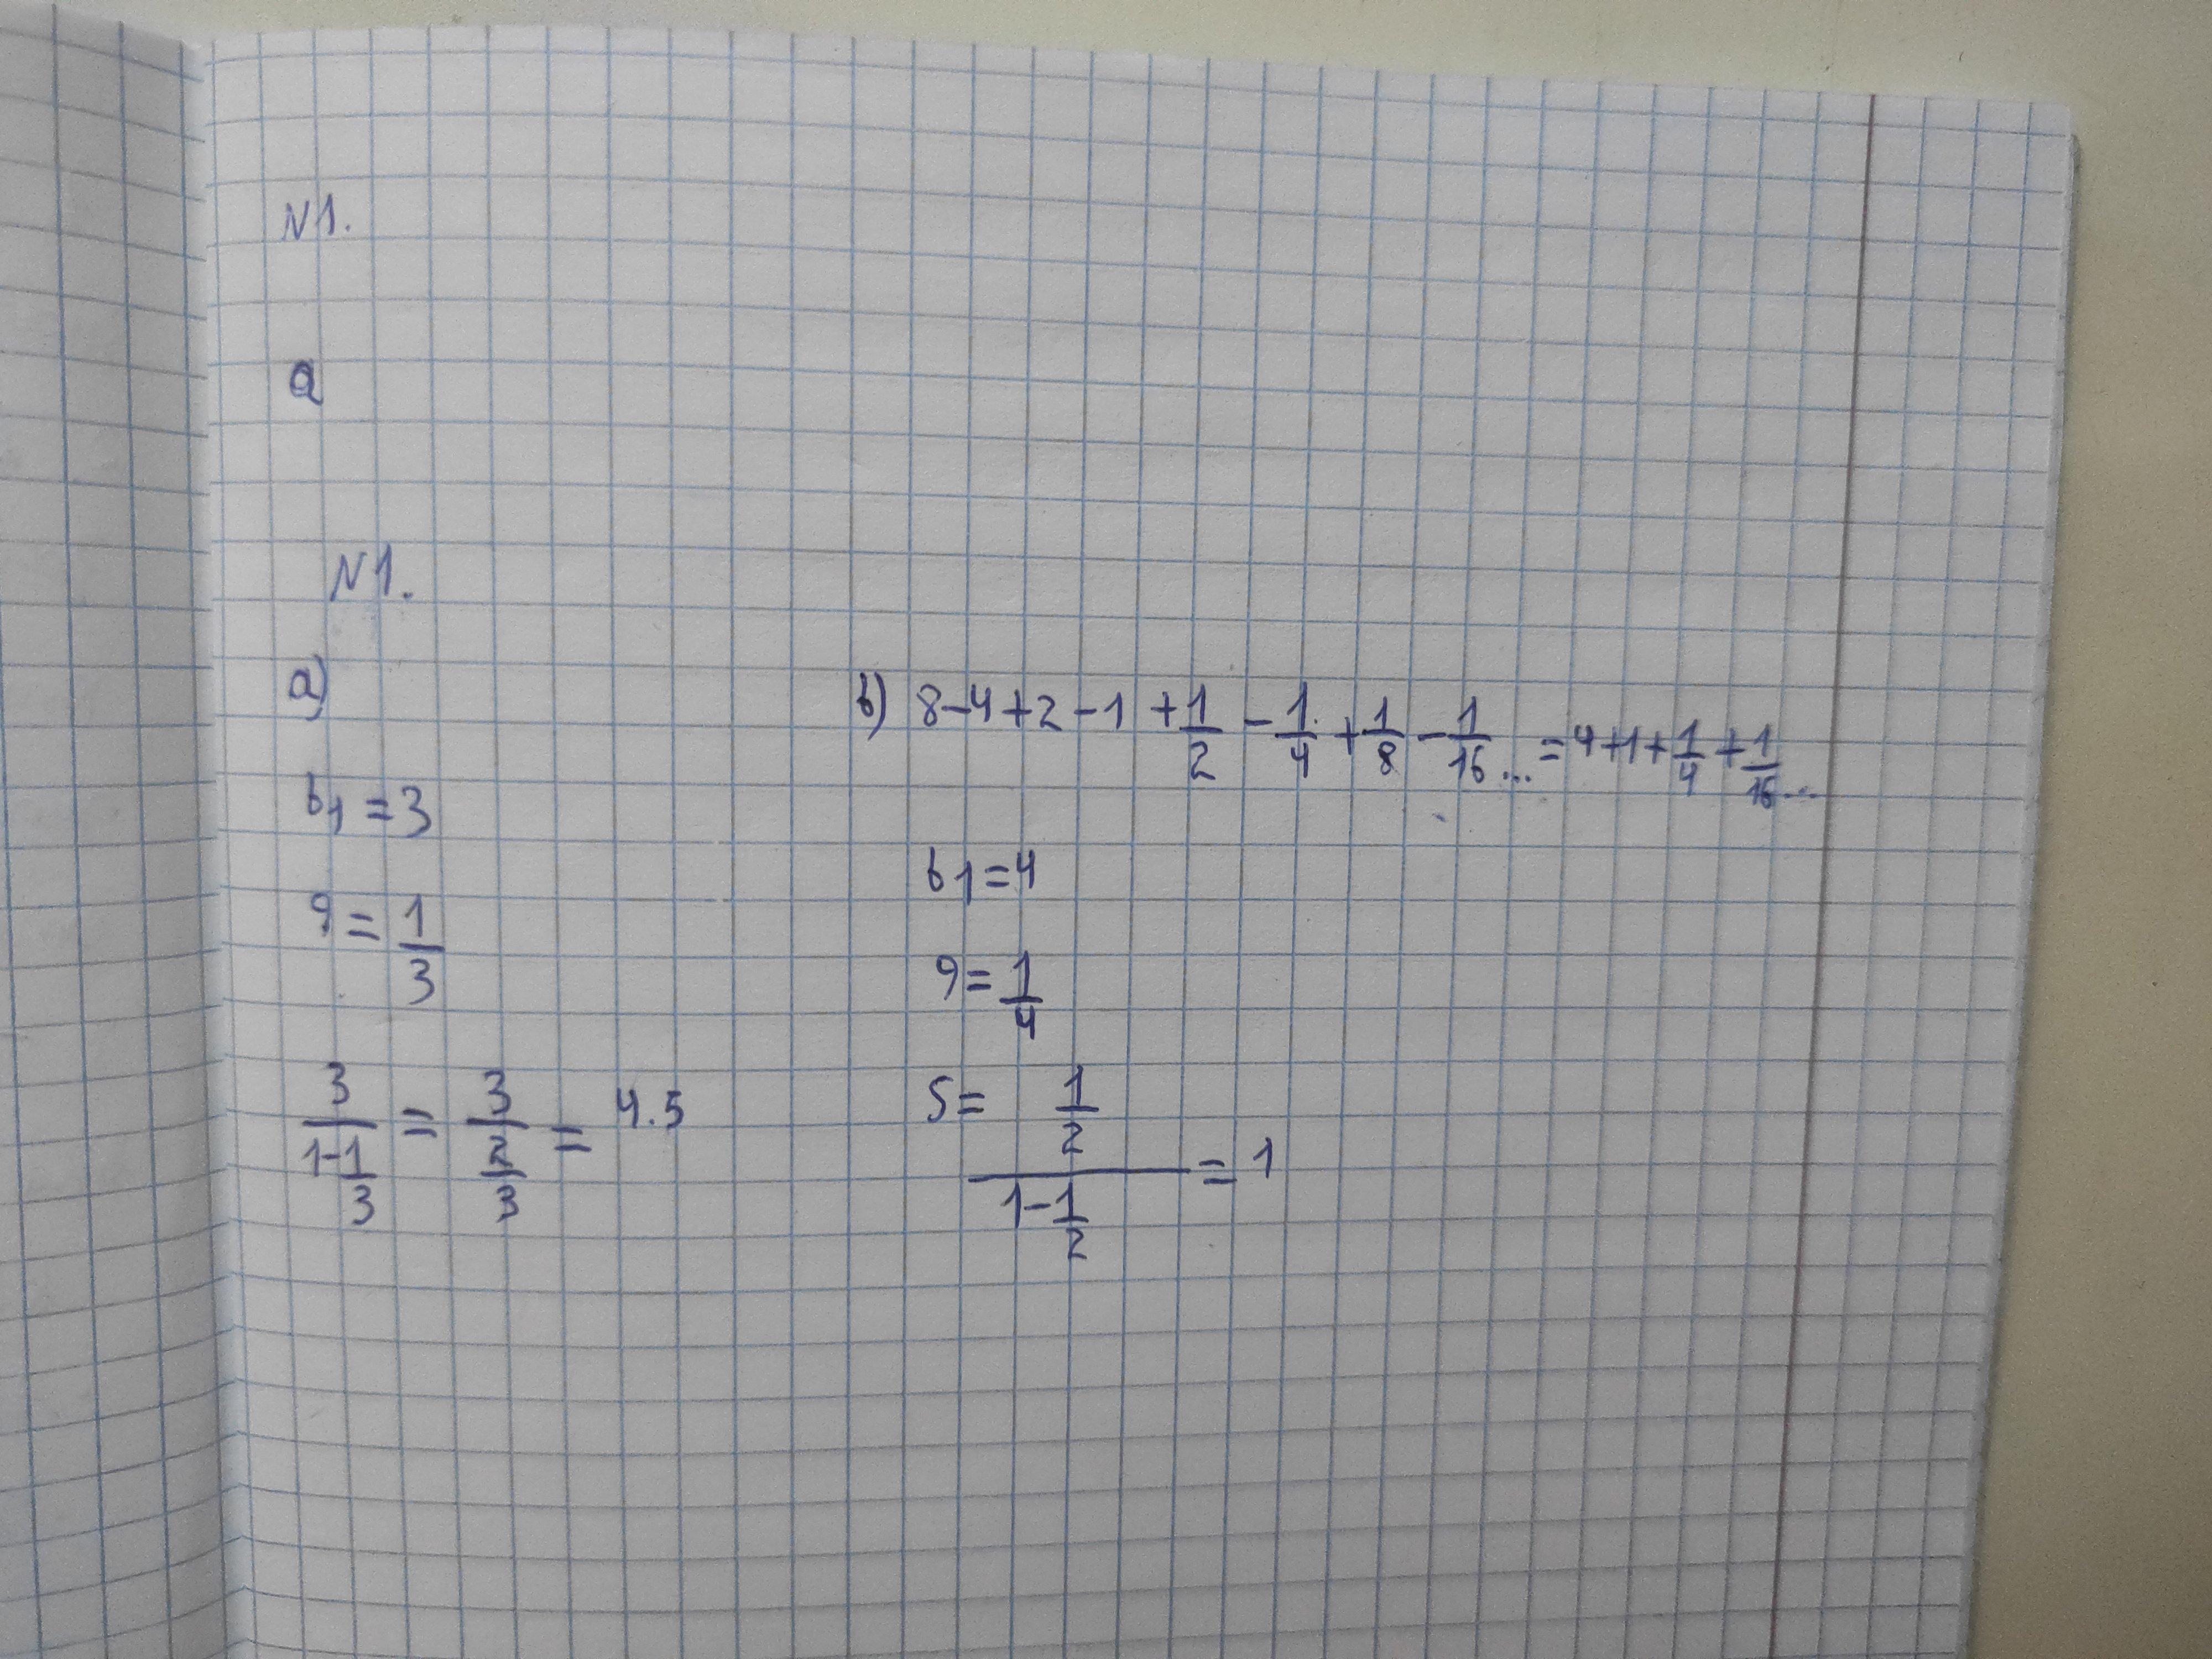 N1.
a
N1.
a)
b₁ = 3
q = 1/3
3/(1-1/3) = 3/(2/3) = 4.5
b) 8-4+2-1+1/2-1/4+1/8-1/16... = 4+1+1/4+1/16...
b₁=4
q=1/4
S= (1/2)/(1-1/2) = 1